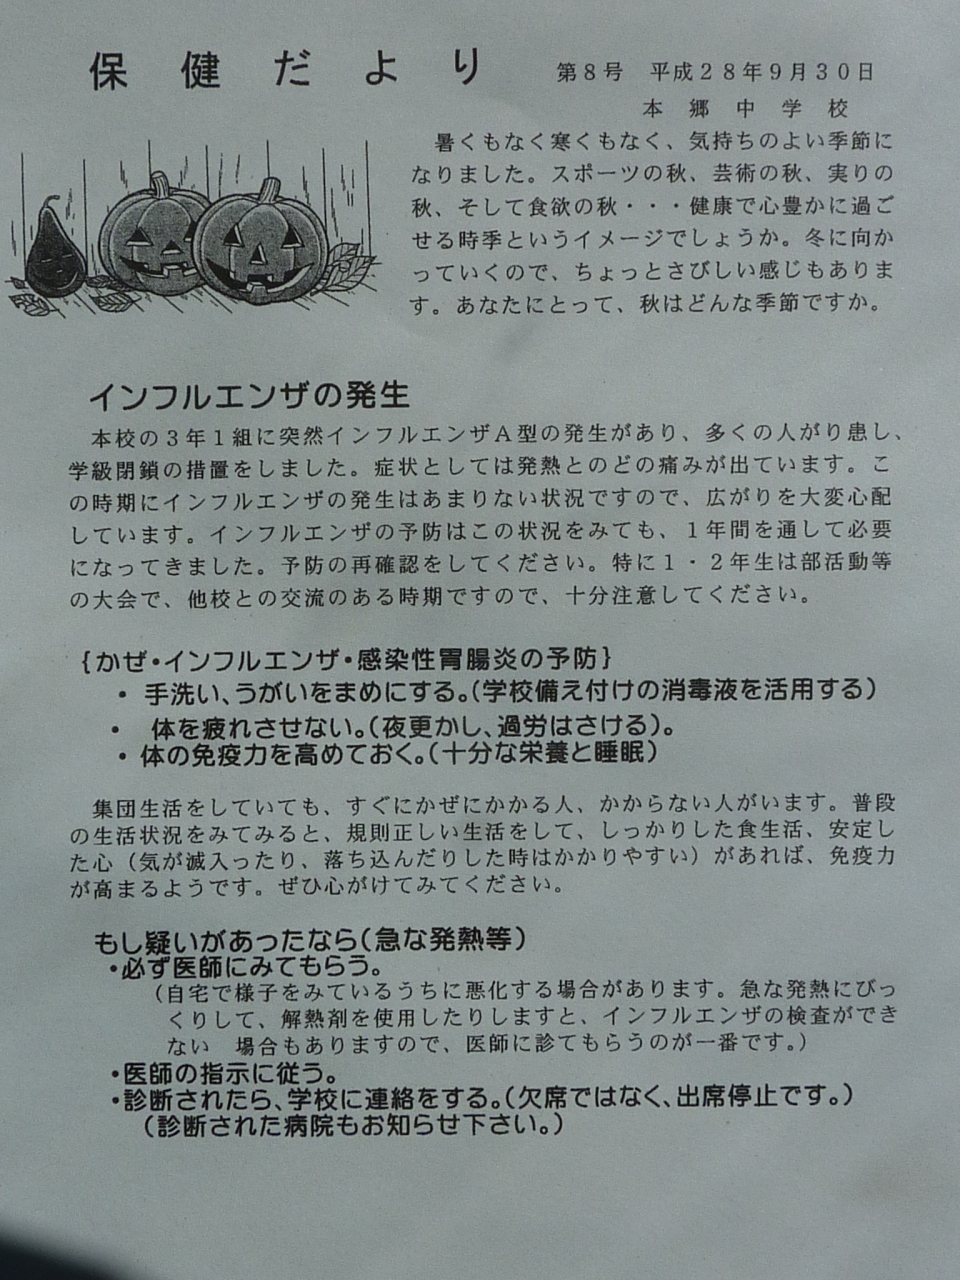 保健だより
第８号　平成２８年９月３０日
本郷中学校
暑くもなく寒くもなく、気持ちのよい季節に
なりました。スポーツの秋、芸術の秋、実りの
秋、そして食欲の秋・・・健康で心豊かに過ご
せる時季というイメージでしょうか。冬に向か
っていくので、ちょっとさびしい感じもありま
す。あなたにとって、秋はどんな季節ですか。
インフルエンザの発生
本校の３年１組に突然インフルエンザＡ型の発生があり、多くの人がり患し、
学級閉鎖の措置をしました。症状としては発熱とのどの痛みが出ています。こ
の時期にインフルエンザの発生はあまりない状況ですので、広がりを大変心配
しています。インフルエンザの予防はこの状況をみても、１年間を通して必要
になってきました。予防の再確認をしてください。特に１・２年生は部活動等
の大会で、他校との交流のある時期ですので、十分注意してください。
{かぜ・インフルエンザ・感染性胃腸炎の予防}
・ 手洗い、うがいをまめにする。（学校備え付けの消毒液を活用する）
・ 体を疲れさせない。（夜更かし、過労はさける）。
・ 体の免疫力を高めておく。（十分な栄養と睡眠）
集団生活をしていても、すぐにかぜにかかる人、かからない人がいます。普段
の生活状況をみてみると、規則正しい生活をして、しっかりした食生活、安定し
た心（気が滅入ったり、落ち込んだりした時はかかりやすい）があれば、免疫力
が高まるようです。ぜひ心がけてみてください。
もし疑いがあったなら（急な発熱等）
・必ず医師にみてもらう。
（自宅で様子をみているうちに悪化する場合があります。急な発熱にびっ
くりして、解熱剤を使用したりしますと、インフルエンザの検査ができ
ない　場合もありますので、医師に診てもらうのが一番です。）
・医師の指示に従う。
・診断されたら、学校に連絡をする。（欠席ではなく、出席停止です。）
（診断された病院もお知らせ下さい。）